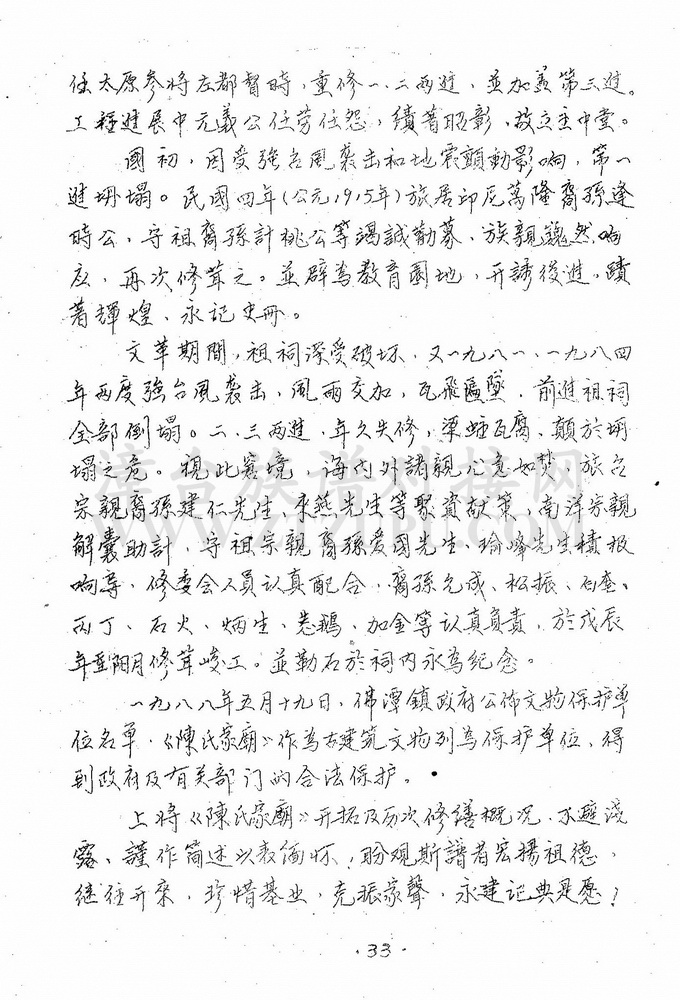 任太原参将左都督時，重修一、二两進，並加盖第三進。
工程進展中元義公任劳任怨，績著昭彰，故立主中堂。
國初，因受強台風袭击和地震顫動影响，第一
進坍塌。民國四年(公元1915年)旅居印尼萬隆裔孫逢
時公，守祖裔孫計桃公等竭誠勸募，族親翕然响
应，再次修茸之。並辟為教育園地，开誘後進，蹟
著輝煌，永记史冊。
文革期間，祖祠深受破坏，又一九八一、一九八四
年两度強台風袭击，風雨交加，瓦飛匾墜，前進祖祠
全部倒塌。二、三两進，年久失修，梁蛀瓦腐，顛於坍
塌之危。視此窘境，海内外諸親心意如焚，旅台
宗親裔孫建仁先生、來燕先生等聚資献策，南洋宗親
解囊助計，守祖宗親裔孫爱國先生、瑜峰先生積极
响导，修委会人員认真配合，裔孫允成、松振、石奎、
丙丁、石火、炳生、恙鵝、加金等认真負責，於戊辰
年荃阳月修茸峻工。並勒石於祠内永為纪念。
一九八八年五月十九日，佛潭鎮政府公佈文物保护单
位名单，《陳氏家廟》作為古建筑文物列為保护单位，得
到政府及有关部门的合法保护。
上将《陳氏家廟》开拓及历次修繕概况，不避浅
露、謹作简述以表缅怀，盼观斯譜者宏揚祖德，
继往开來，珍惜基业，克振家聲，永建记典是愿！
·33·
漳台族谱对接网